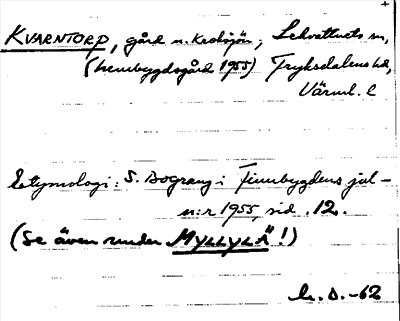 KVARNTORP, gård n. Kroksjön, Lekvattnets sn,
(hembygdsgård 1955) Fryksdalens hd,
Värml. l
Etymologi: S. Bograng i Finnbygdens jul-
n:r 1955, sid. 12.
(Se även under MYLLYLÄ!)
D. -62